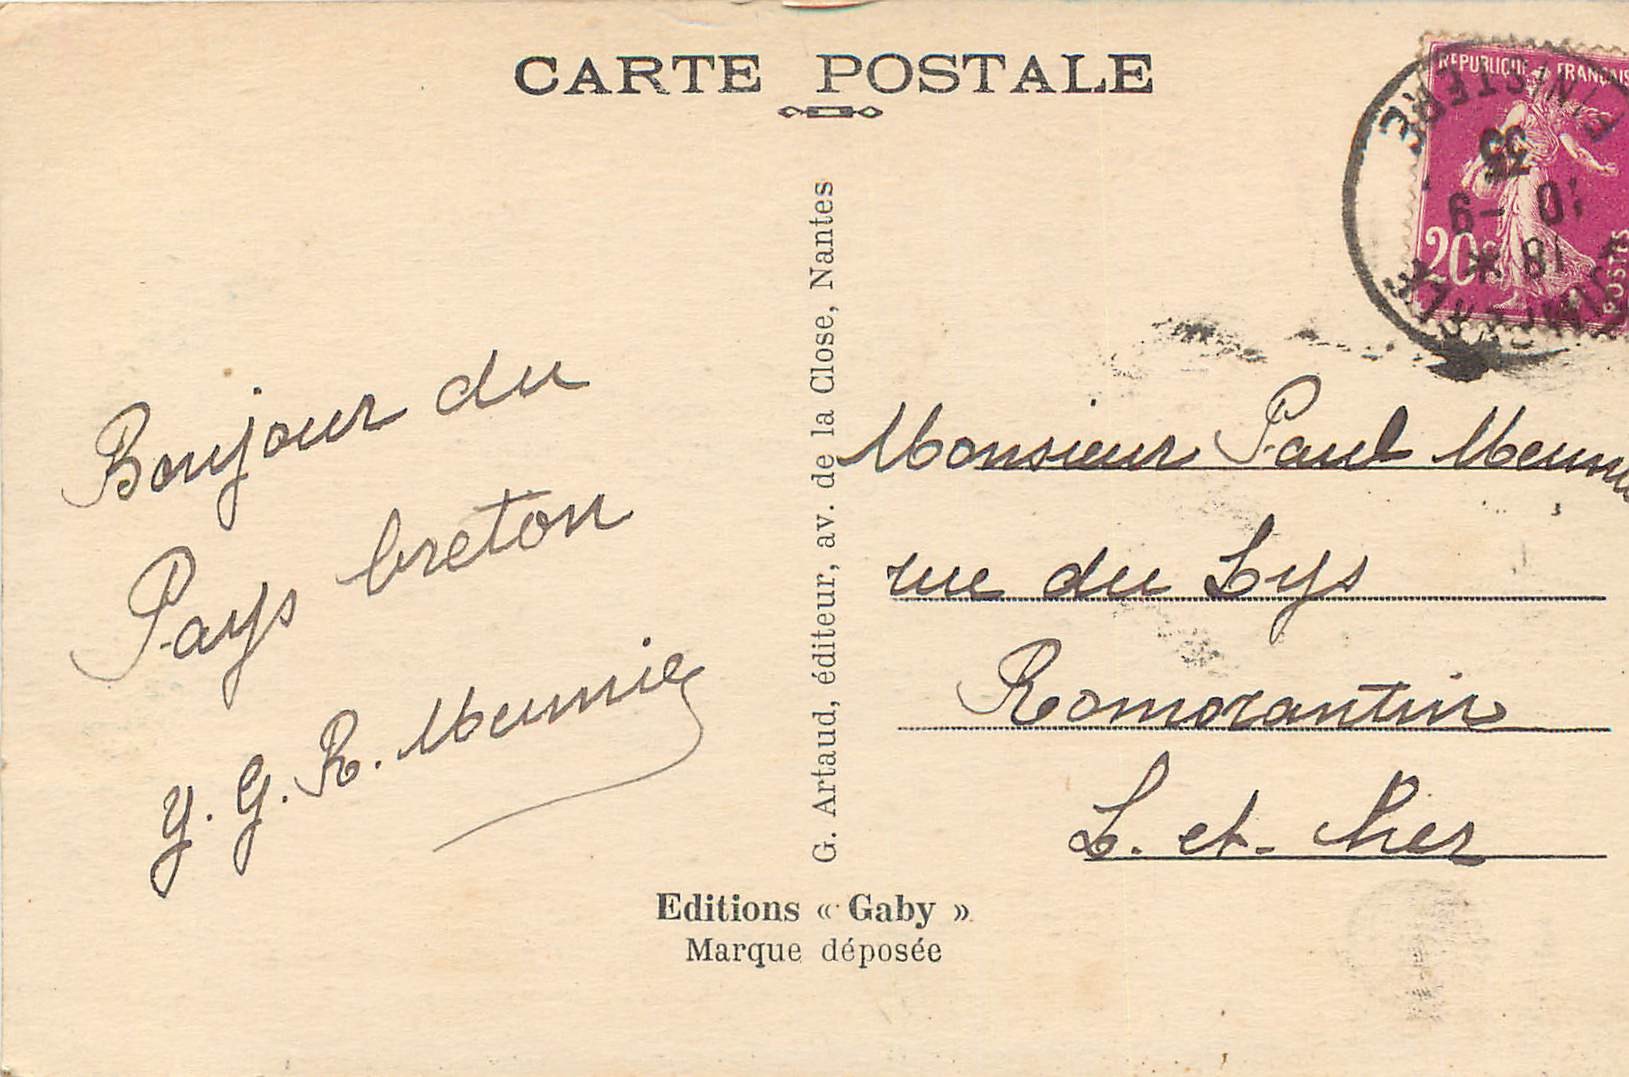 CARTE POSTALE
REPUBLIQUE FRANÇAIS
20c
POSTES
FINISTERE
18
10 - 9
35
Bonjour du
Pays breton
Y. G. R. Meunier
G. Artaud, éditeur, av. de la Close, Nantes
Monsieur Paul Meunie
rue du Lys
Romorantin
L. et. Cher
Editions « Gaby »
Marque déposée